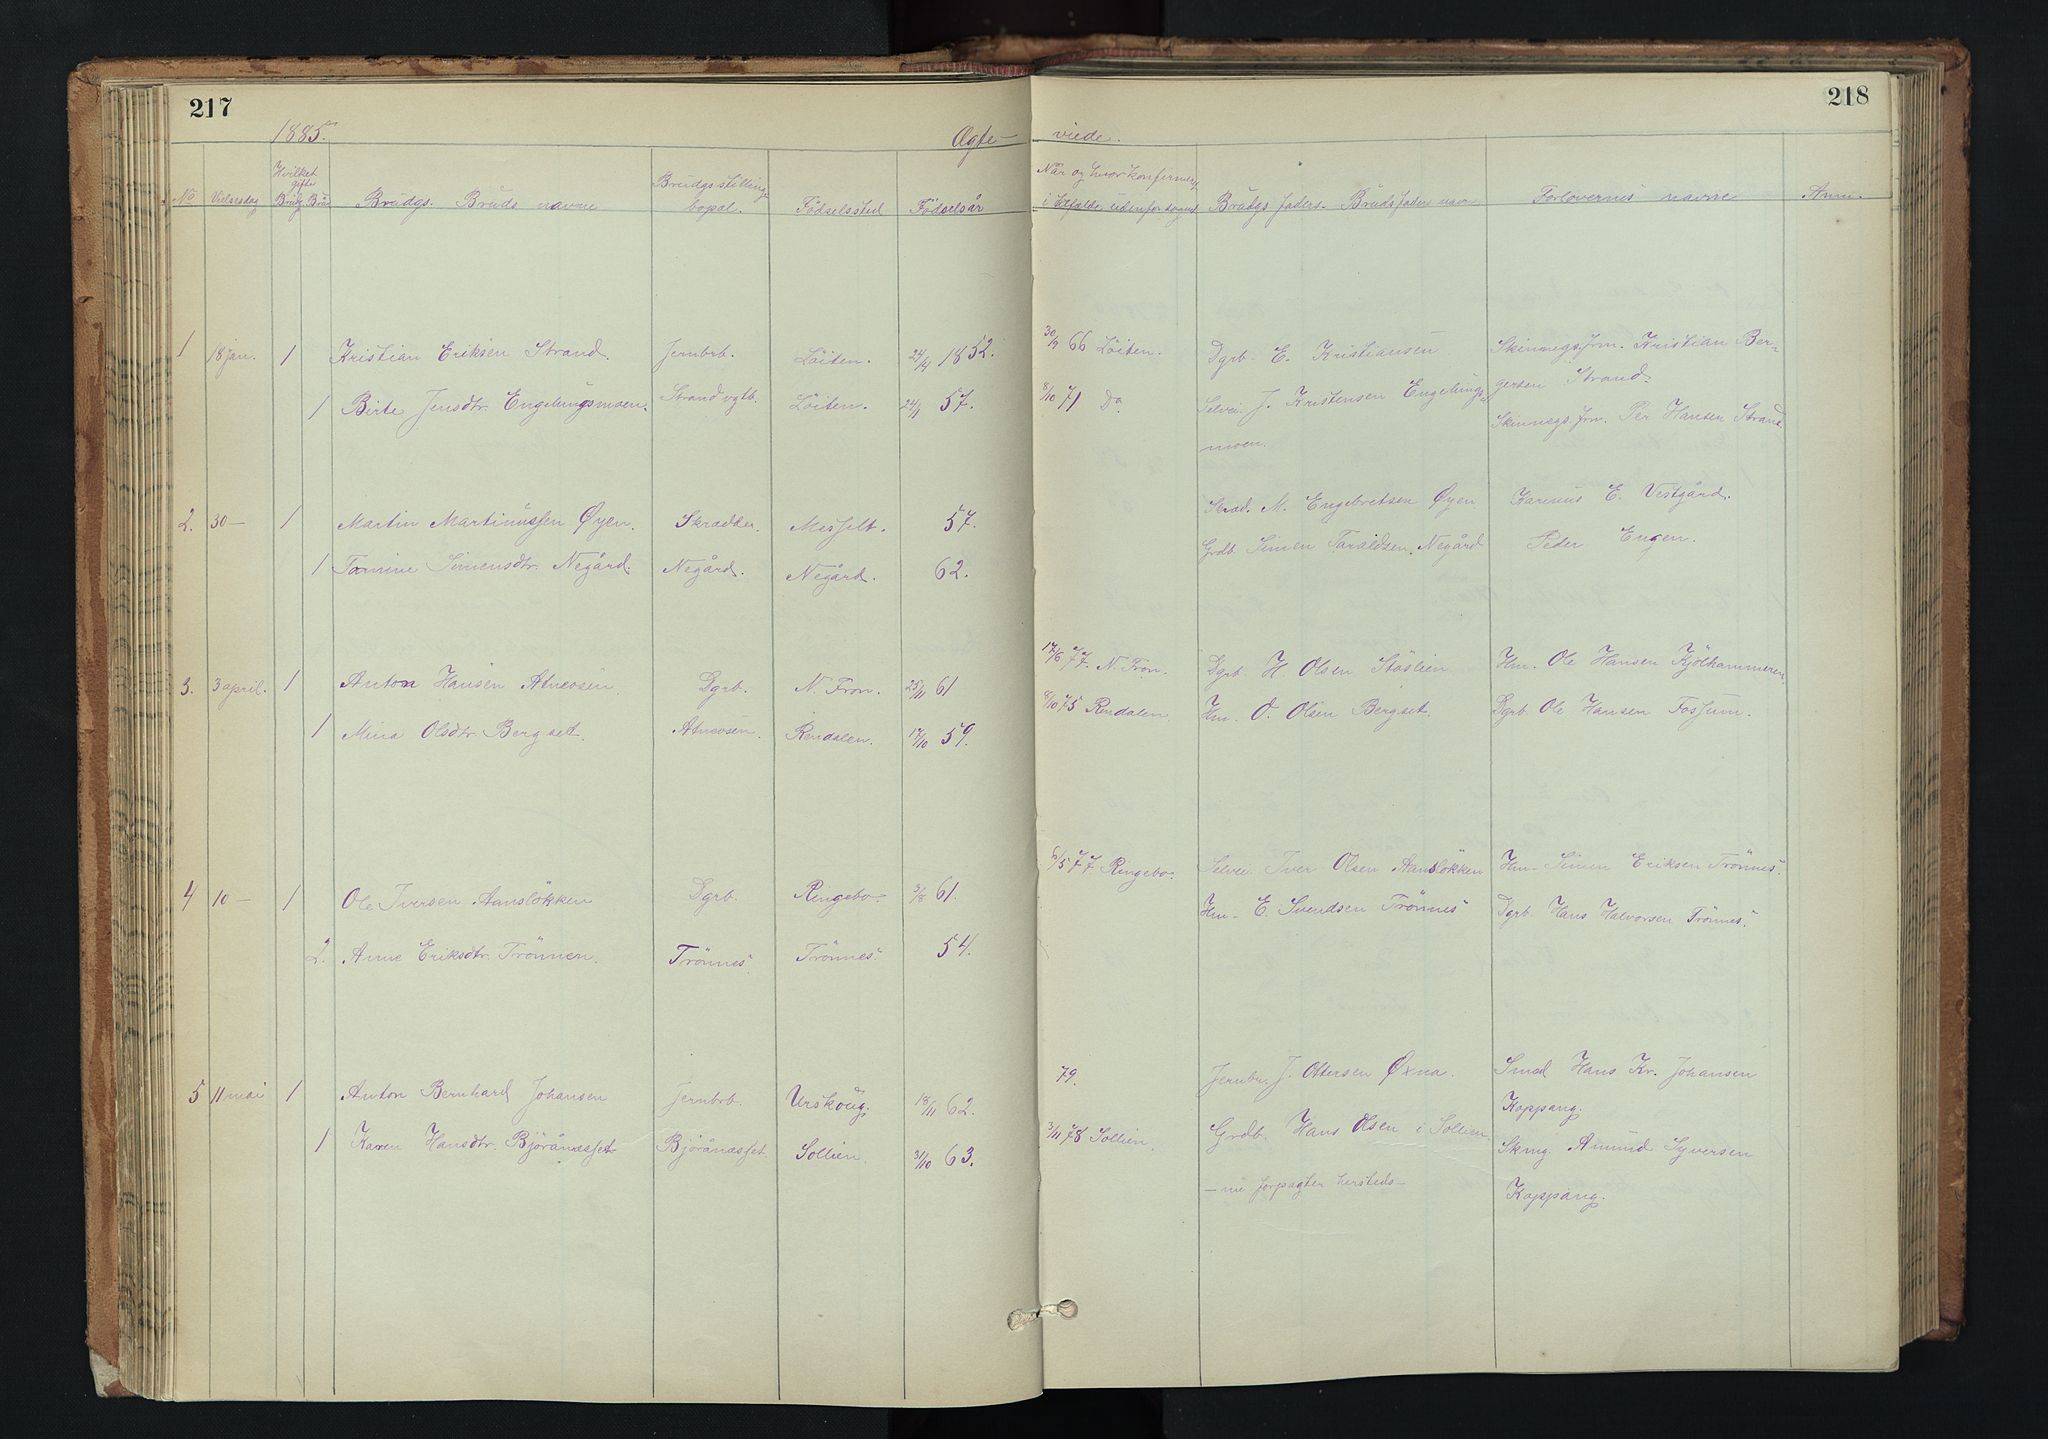 217
218
1885.
Ægte-
viede.
No
Vielsesdag
Hvilket
gifte
Brudg. Brud
Brudgs. Bruds navne
Brudgs stilling
bopæl.
Fødselssted
Fødselsår
Når og hvor konfirmert
i tilfælde udenfor sognet
Brudgs faders. Bruds faders navn
Forlovernes navne
Anm.
1 18 jan. 1 Kristian Eriksen Strand. Jernbrb. Löiten. 24/4 1852. 30/9 66 Löiten. Dgrb. E. Kristiansen Skinnegsfrm. Kristian Ber-
1 Birte Jensdtr. Engelungsmoen. Strand vgtb. Löiten. 24/1 57. 8/10 71 Do. Selvei. J. Kristensen Engelungs- gersen Strand.
moen. Skinnegsfrm. Per Hansen Strand
2. 30- 1 Martin Martinussen Øyen. Skrædder. Messelt. 57. Skræd. M. Engebretsen Øyen Karenus E. Vestgård.
1 Tomine Simensdtr. Negård. Negård. Negård. 62. Grdb. Simen Taraldsen Negård Peder Engen.
3. 3 april. 1 Anton Hansen Atneosen Dgrb. N. Fron. 25/11 61 17/6 77 N. Fron. Dgrb H Olsen Stöslien Hm. Ole Hansen Kjölhammeren.
1 Mina Olsdtr. Bergset. Atneosen. Rendalen. 17/10 59. 8/10 75 Rendalen. Hm. O. Olsen Bergset. Dgrb. Ole Hansen Fossum.
4 10- 1 Ole Iversen Aanslökken Dgrb. Ringebo. 3/8 61. 6/5 77 Ringebo. Selvei. Iver Olsen Aanslökken Hm. Simen Eriksen Trönnes.
Hm. E. Svendsen Trönnes Dgrb. Hans Halvorsen Trönnes.
2. Anne Eriksdtr. Trönnen. Trönnes. Trönnes. 54.
5 11 mai 1 Anton Bernhard Johansen Jernbrb. Urskoug. 18/11 62. 79. Jernbr. J. Ottersen Øxna. Smed Hans Kr. Johansen
Koppang.
1 Karen Hansdtr. Björåneset Björåneset. Sollien. 31/10 63. 3/11 78 Sollien. Grdb. Hans Olsen i Sollien Skmg. Amund Syversen
-nu forpagter hersteds- Koppang.